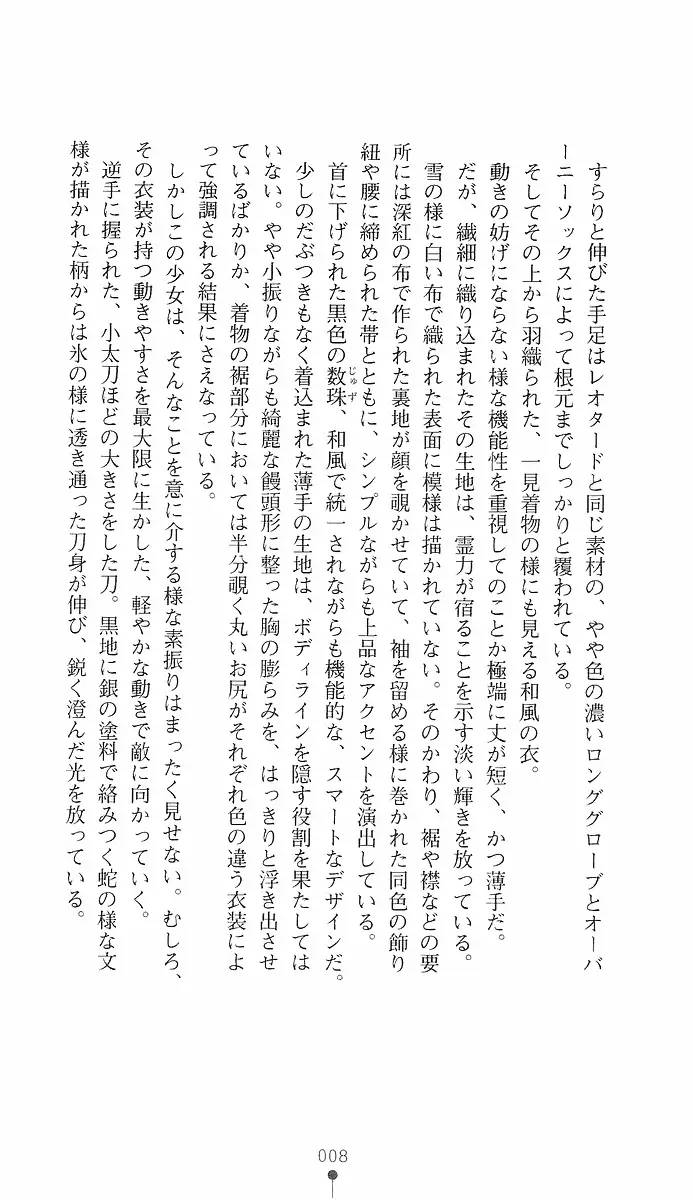 すらりと伸びた手足はレオタードと同じ素材の、やや色の濃いロンググローブとオーバ
ーニーソックスによって根元までしっかりと覆われている。
そしてその上から羽織られた、一見着物の様にも見える和風の衣。
動きの妨げにならない様な機能性を重視してのことか極端に丈が短く、かつ薄手だ。
だが、繊細に織り込まれたその生地は、霊力が宿ることを示す淡い輝きを放っている。
雪の様に白い布で織られた表面に模様は描かれていない。そのかわり、裾や襟などの要
所には深紅の布で作られた裏地が顔を覗かせていて、袖を留める様に巻かれた同色の飾り
紐や腰に締められた帯とともに、シンプルながらも上品なアクセントを演出している。
首に下げられた黒色の数珠、和風で統一されながらも機能的な、スマートなデザインだ。
じゅず
少しのだぶつきもなく着込まれた薄手の生地は、ボディラインを隠す役割を果たしては
いない。やや小振りながらも綺麗な饅頭形に整った胸の膨らみを、はっきりと浮き出させ
ているばかりか、着物の裾部分においては半分覗く丸いお尻がそれぞれ色の違う衣装によ
って強調される結果にさえなっている。
しかしこの少女は、そんなことを意に介する様な素振りはまったく見せない。むしろ、
その衣装が持つ動きやすさを最大限に生かした、軽やかな動きで敵に向かっていく。
逆手に握られた、小太刀ほどの大きさをした刀。黒地に銀の塗料で絡みつく蛇の様な文
様が描かれた柄からは氷の様に透き通った刀身が伸び、鋭く澄んだ光を放っている。
008